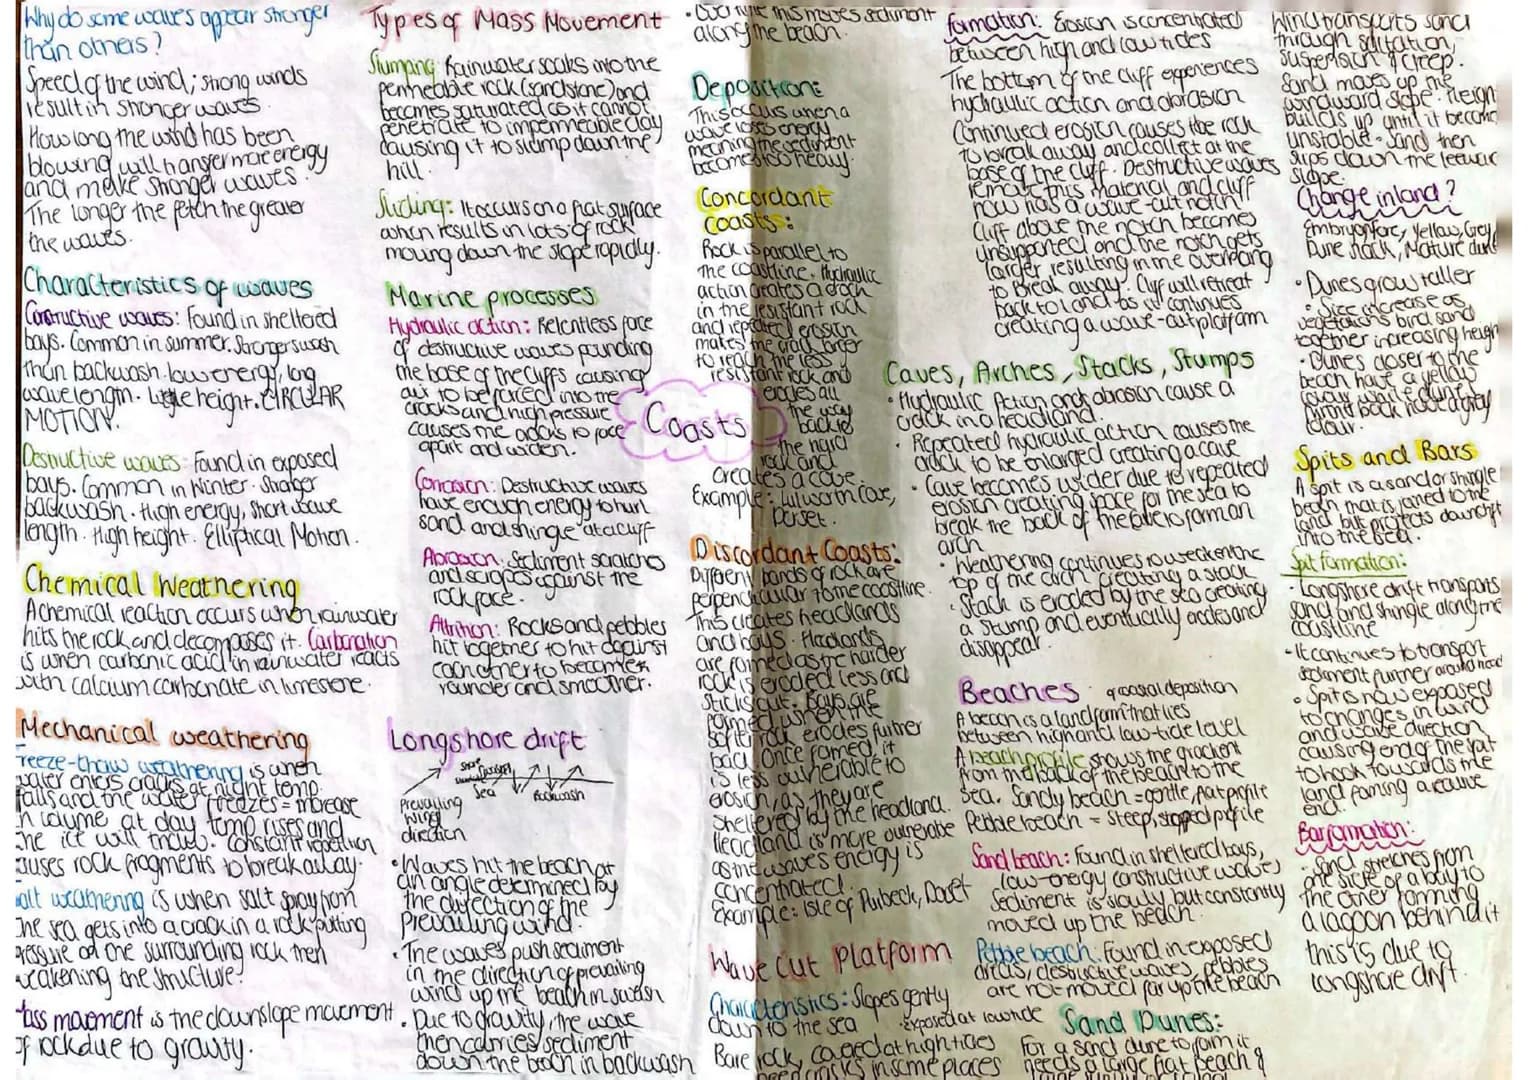 Why do some waves appear stronger
than others?
Speed of the wind; strong winds
result in stronger waves.
How long the wind has been
blowing will transfer more energy
and make stronger waves.
The longer the fetch the greater
the waves.
Characteristics of waves
Constructive waves: Found in sheltered
bays. Common in summer. Stronger swash
than backwash. low energy, long
wavelength. height. CIRCULAR
MOTION.
Destructive waves: Found in exposed
bays. Common in Winter. Stronger
backwash. High energy, short wave
length. High height. Elliptical Motion.
Chemical Weathering
A chemical reaction occurs when rainwater
hits the rock and decomposes it. Carbonation
is when carbonic acid in rainwater reacts
with calcium carbonate in limestone.
Mechanical weathering
Freeze-thaw weathering is when
water enters cracks at night temp.
falls and the water freezes = increase
in volume at day temp rises and
the ice will thaw. constant repetition
causes rock fragments to break away.
Salt weathering is when salt spray from
the sea gets into a crack in a rock putting
pressure on the surrounding rock then
weakening the structure.
Mass movement is the downslope movement
of rock due to gravity.
Types of Mass Movement
Slumping: Rainwater soaks into the
permeable rock (sandstone) and
becomes saturated as it cannot
penetrate to impermeable clay
causing it to slump down the
hill.
Sliding: It occurs on a flat surface
when results in lots of rock
moving down the slope rapidly.
Marine processes
Hydraulic action: Relentless force
of destructive waves pounding
the base of the cliffs causing
air to be forced into the
cracks and high pressure
causes the cracks to force
apart and widen.
Corrosion: Destructive waves
have enough energy to hurl
sand and shingle at a cliff
Abrasion: Sediment scratches
and scrapes against the
rock face.
Attrition: Rocks and pebbles
hit together to hit against
each other to become
rounder and smoother.
Longshore drift
Sea
Backwash
Prevailing
wind
direction
• Waves hit the beach at
an angle determined by
the direction of the
prevailing wind.
• The waves push sediment
in the direction of prevailing
wind up the beach in swash
• Due to gravity, the wave
then carries sediment
down the beach in backwash
Coasts
• Over time this moves sediment
along the beach.
Deposition:
This occurs when a
wave loses energy
meaning the sediment
becomes too heavy.
Concordant
Coasts:
Rock is parallel to
the coastline. Hydraulic
action creates a crack
in the resistant rock
and repeated erosion
makes the crack larger
to reach the less
resistant rock and
erodes all
the way
back to
the hard
rock and
creates a cove.
Example: Lulworth Cove,
Dorset.
Discordant Coasts:
Different bands of rock are
perpendicular to the coastline.
This creates headlands
and bays. Headlands
are formed as the harder
rock is eroded less and
sticks out. Bays are
formed when the
softer rock erodes further
back once formed, it
is less vulnerable to
erosion, as they are
sheltered by the headland.
Headland is more vulnerable
as the waves energy is
concentrated.
Example: Isle of Purbeck, Dorset
Wave Cut Platform
Characteristics: Slopes gently
down to the sea • Exposed at low tide
Bare rock, covered at high tides
in some places
formation: Erosion is concentrated
between high and low tides
The bottom of the cliff experiences
hydraulic action and abrasion
Continued erosion causes the rock
to break away and collect at the
base of the cliff. Destructive waves
remove this material and cliff
now has a wave-cut notch
Cliff above the notch becomes
unsupported and the notch gets
larger resulting in the overhang
to break away. Cliff will retreat
back to land as it continues
creating a wave-cut platform
Caves, Arches, Stacks, Stumps
• Hydraulic Action and abrasion cause a
crack in a headland
• Repeated hydraulic action causes the
crack to be enlarged creating a cave
• Cave becomes wider due to repeated
erosion creating space for the sea to
break the back of the cave to form an
arch
• Weathering continues to weaken the
top of the arch creating a stack
• Stack is eroded by the sea creating
a stump and eventually erodes and
disappear.
Beaches of coastal deposition
A beach is a landform that lies
between high and low-tide level
A beach profile shows the gradient
from the back of the beach to the
sea. Sandy beach = gentle, flat profile
Pebble beach = steep, stepped profile
Sand beach: Found in sheltered bays,
low-energy constructive waves,
sediment is slowly but constantly
moved up the beach.
Pebble beach: Found in exposed
areas, destructive waves, pebbles
are not moved far up the beach
Sand Dunes:
For a sand dune to form it
needs a large flat beach &
Wind transports sand
through saltation,
suspension & creep.
Sand moves up the
windward slope. Height
builds up until it become
unstable. Sand then
slips down the leeward
slope.
Change inland?
Embryo, Fore, Yellow, Grey
Dune slack, Mature dune
• Dunes grow taller
• Size increase as
vegetations bind sand
together increasing height
• Dunes closer to the
beach have a yellow
colour while dunes
further back have a grey
colour.
Spits and Bars
A spit is a sand or shingle
beach that is joined to the
land but projects downdrift
into the sea.
Spit formation:
• Longshore drift transports
sand and shingle along the
coastline
• It continues to transport
sediment further around head
• Spit is now exposed
to changes in wind
and wave direction
causing end of the spit
to hook towards the
land forming a recurve
end.
Bar formation:
• Sand stretches from
one side of a bay to
the other forming
a lagoon behind it
this is due to
longshore drift.